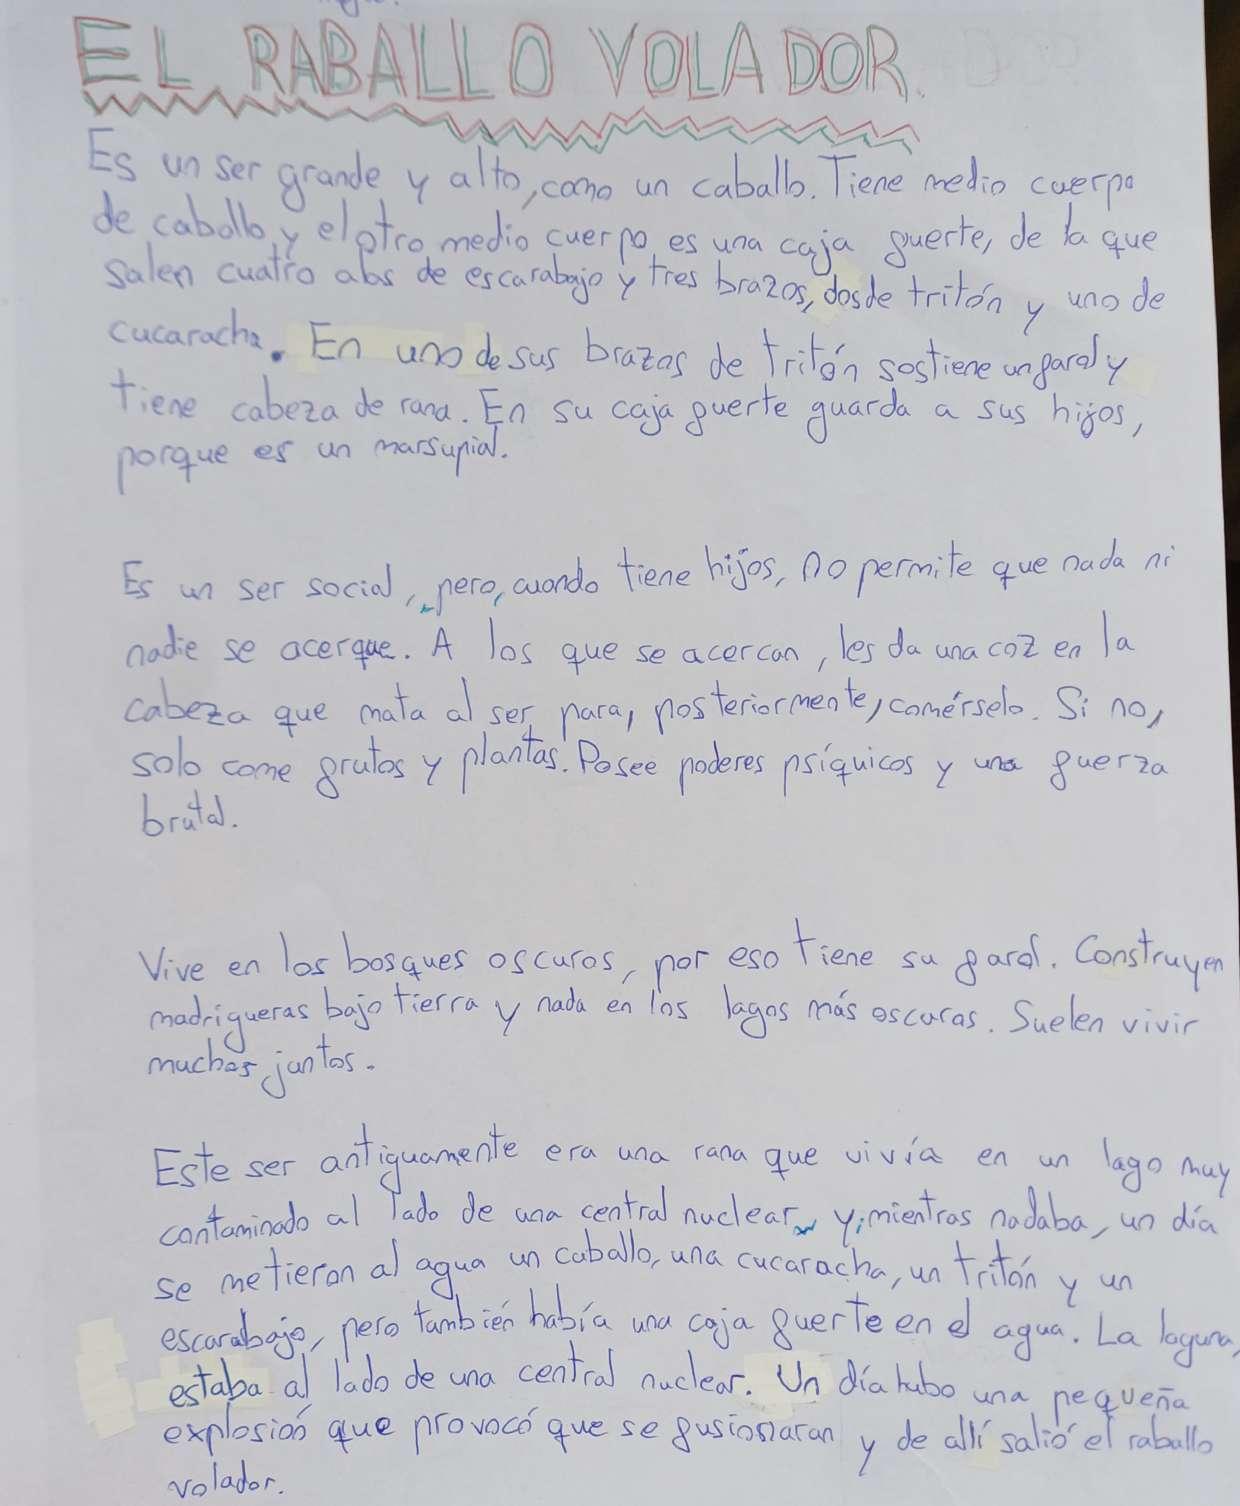 EL RABALLO VOLADOR.
Es un ser grande y alto, como un caballo. Tiene medio cuerpo
de caballo y el otro medio cuerpo es una caja fuerte, de la que
salen cuatro alas de escarabajo y tres brazos, dos de tritón y uno de
cucaracha. En uno de sus brazos de tritón sostiene un farol y
tiene cabeza de rana. En su caja fuerte guarda a sus hijos,
porque es un marsupial.
Es un ser social, pero, cuando tiene hijos, no permite que nada ni
nadie se acerque. A los que se acercan, les da una coz en la
cabeza que mata al ser para, posteriormente, comérselo. Si no,
solo come frutos y plantas. Posee poderes psíquicos y una fuerza
brutal.
Vive en los bosques oscuros, por eso tiene su farol. Construyen
madrigueras bajo tierra y nada en los lagos más oscuras. Suelen vivir
muchos juntos.
Este ser antiguamente era una rana que vivía en un lago muy
contaminado al lado de una central nuclear y, mientras nadaba, un día
se metieron al agua un caballo, una cucaracha, un tritón y un
escarabajo, pero también había una caja fuerte en el agua. La laguna,
estaba al lado de una central nuclear. Un día hubo una pequeña
explosión que provocó que se fusionaran y de allí salió el raballo
volador.